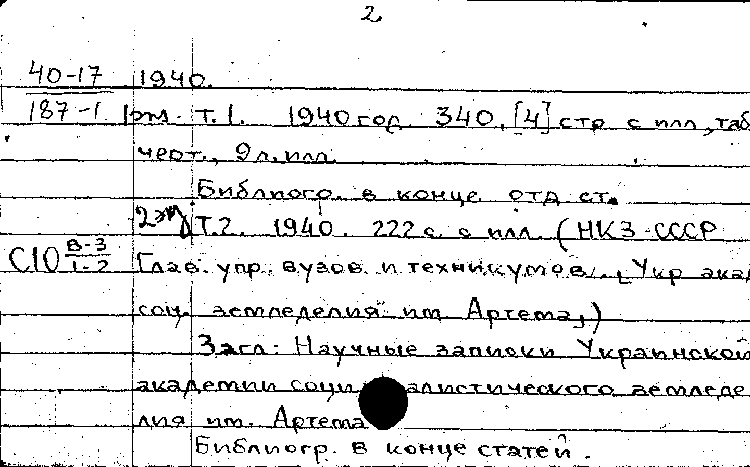 2
40-17 1940.
187-1 1эм. Т.1. 1940 год 340, [4] стр с илл, таб
черт., 9 л. илл
Библиогр. в конце отд ст.
2эм Т.2. 1940. 222 с. с илл. (НКЗ-СССР
С10 В-3/1-2 Глав. упр. вузов и техникумов. Укр акад
соц. земледелия им Артема,)
Загл: Научные записки Украинской
академии соци алистического земледе
лия им. Артема
Библиогр. в конце статей.